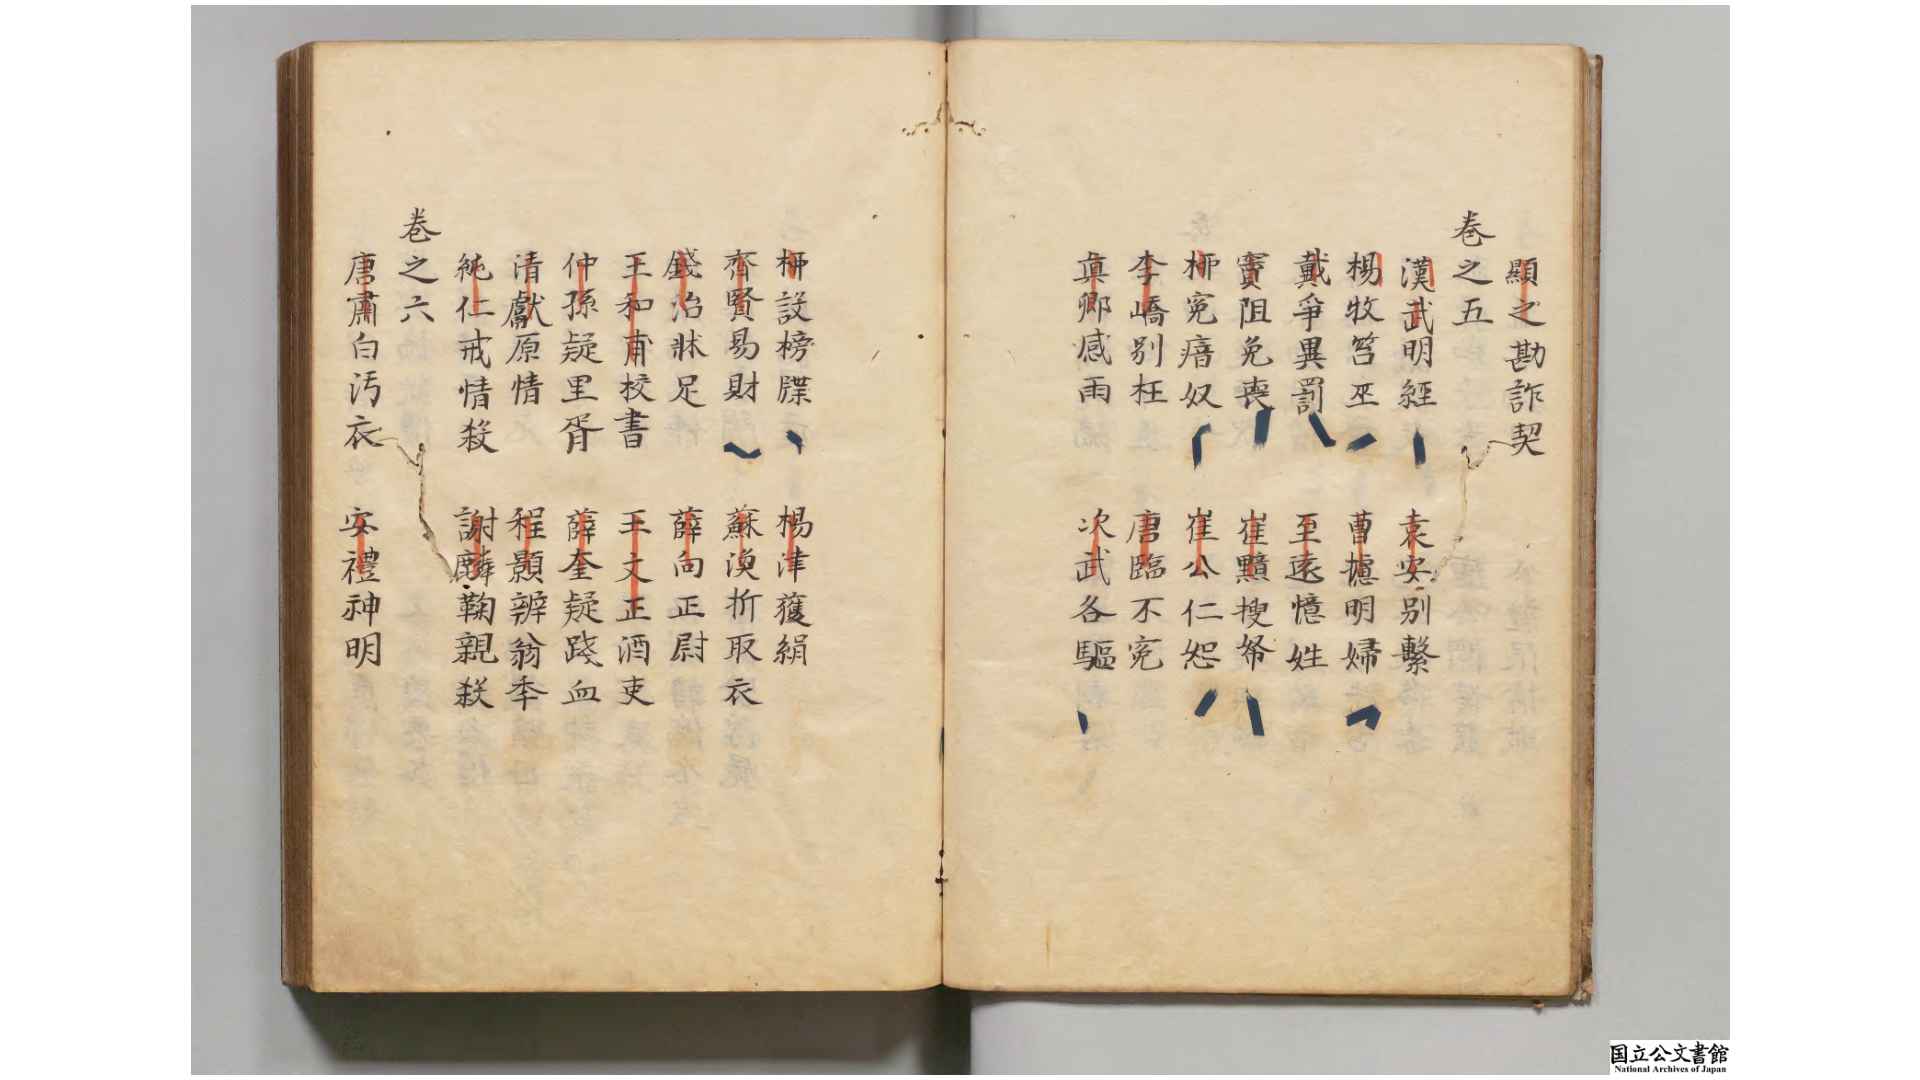 顯之勘詐契
卷之五
漢武明經　袁安別繫
楊牧笞巫　曹攄明婦
戴爭異罰　至遠憶姓
竇阻免喪　崔黯搜帑
柳寃瘖奴　崔公仁恕
李嶠別枉　唐臨不寃
真卿感雨　次武各驅
柳設榜牒　楊津獲絹
齊賢易財　蘇渙折取衣
錢冶牀足　薛向正尉
王和甫校書　王文正酒吏
仲孫疑里胥　薛奎疑踐血
清獻原情　程顥辨翁年
純仁戒情殺　謝麟鞠親殺
卷之六
唐肅白汚衣　安禮神明
国立公文書館
National Archives of Japan